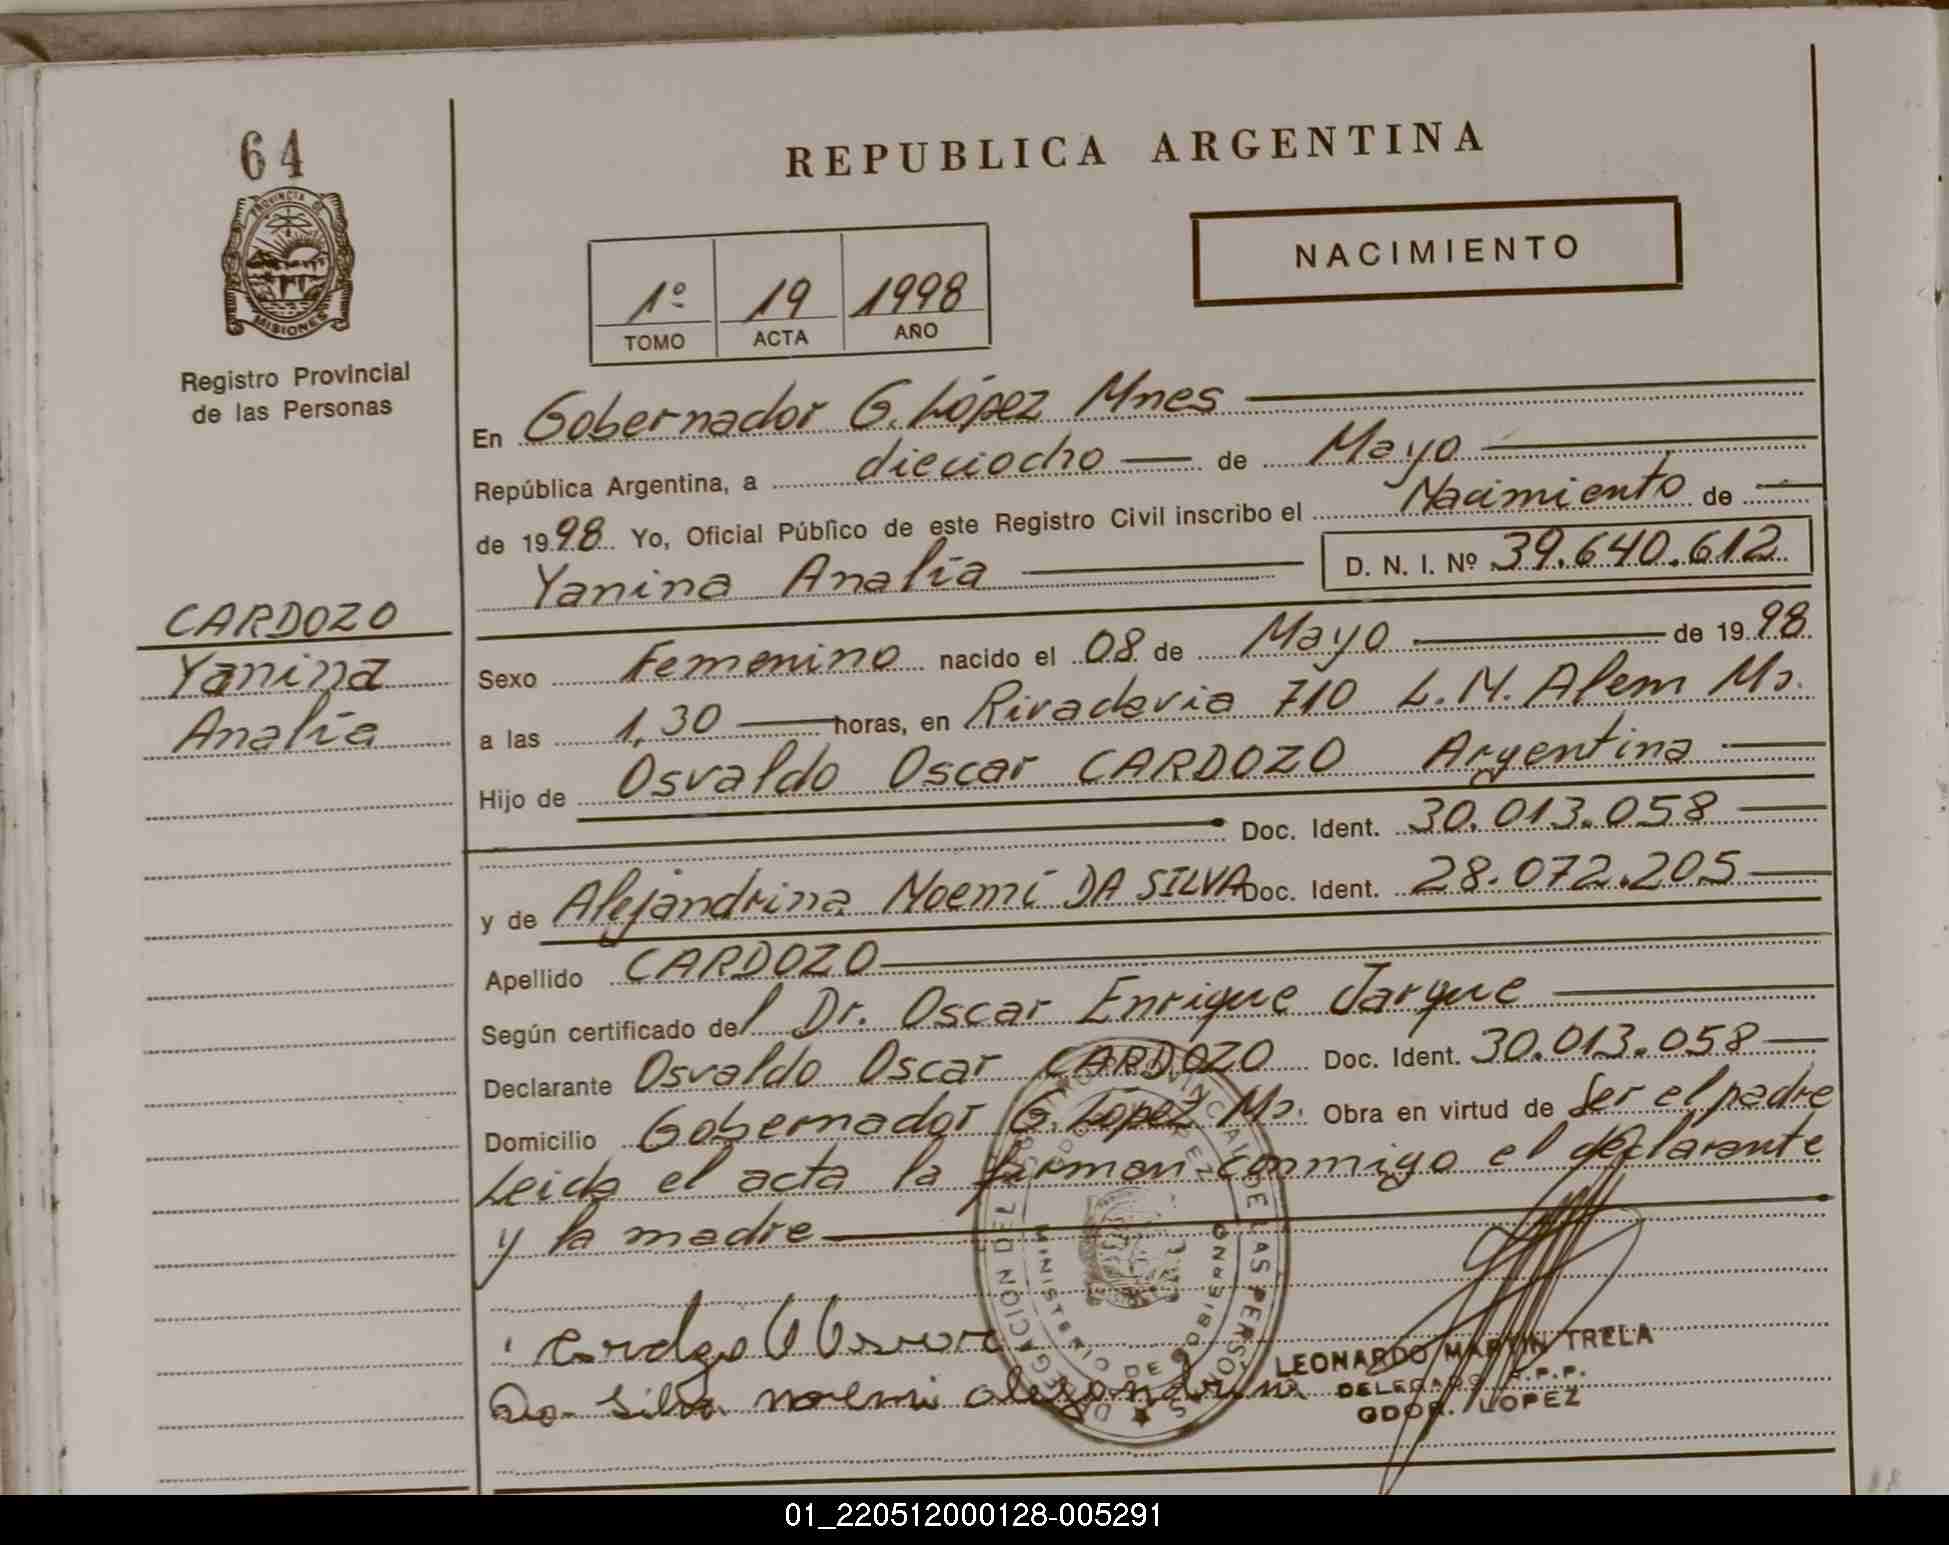 64
PROVINCIA DE
MISIONES
Registro Provincial
de las Personas
CARDOZO
Yanina
Analía
REPUBLICA ARGENTINA
NACIMIENTO
1º 19 1998
TOMO ACTA AÑO
En Gobernador G. López Mnes
República Argentina, a dieciocho de Mayo
de 1998 Yo, Oficial Público de este Registro Civil inscribo el Nacimiento de
Yanina Analía D. N. I. Nº 39.640.612
Sexo Femenino nacido el 08 de Mayo de 1998
a las 1,30 horas, en Rivadavia 710 L.N. Alem Ms.
Hijo de Osvaldo Oscar CARDOZO Argentina
Doc. Ident. 30.013.058
y de Alejandrina Noemí DA SILVA Doc. Ident. 28.072.205
Apellido CARDOZO
Según certificado del Dr. Oscar Enrique Jarque
Declarante Osvaldo Oscar CARDOZO Doc. Ident. 30.013.058
Domicilio Gobernador G. López Ms. Obra en virtud de Ser el padre
Leida el acta la firman conmigo el declarante
y la madre
Da Silva noemi alejandrina
LEONARDO MARTIN TRELA
DELEGADO R.P.P.
GDOR. LOPEZ
DELEGACION REGISTRO PROVINCIAL DE LAS PERSONAS
MINISTERIO DE GOBIERNO
01_220512000128-005291